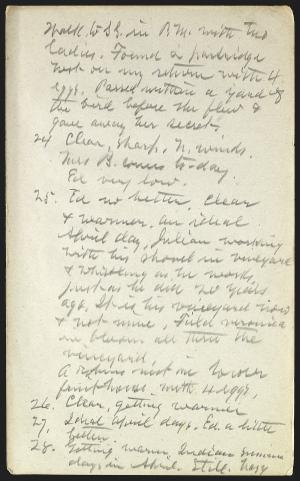 Walk to S.S. in P.M. with two
ladies. Found a partridge
nest on my return with 4
eggs. Passed within a yard of
the bird before she flew &
gave away her secret.
24 Clear, sharp, N. winds.
Mrs B. comes to-day.
Ed very low.
25. Ed no better, clear
& warmer, an ideal
April day, Julian working
with his shovel in vineyard
& whistling as he works,
just as he did 20 years
ago. It is his vineyard now
& not mine, Field veronica
in bloom all thru the
vineyard,
A robins nest in lower
fruit house with 4 eggs,
26. Clear, getting warmer
27, Ideal April days. Ed. a little
better.
28. Getting warm, Indian summer
days in April. Still. hazy